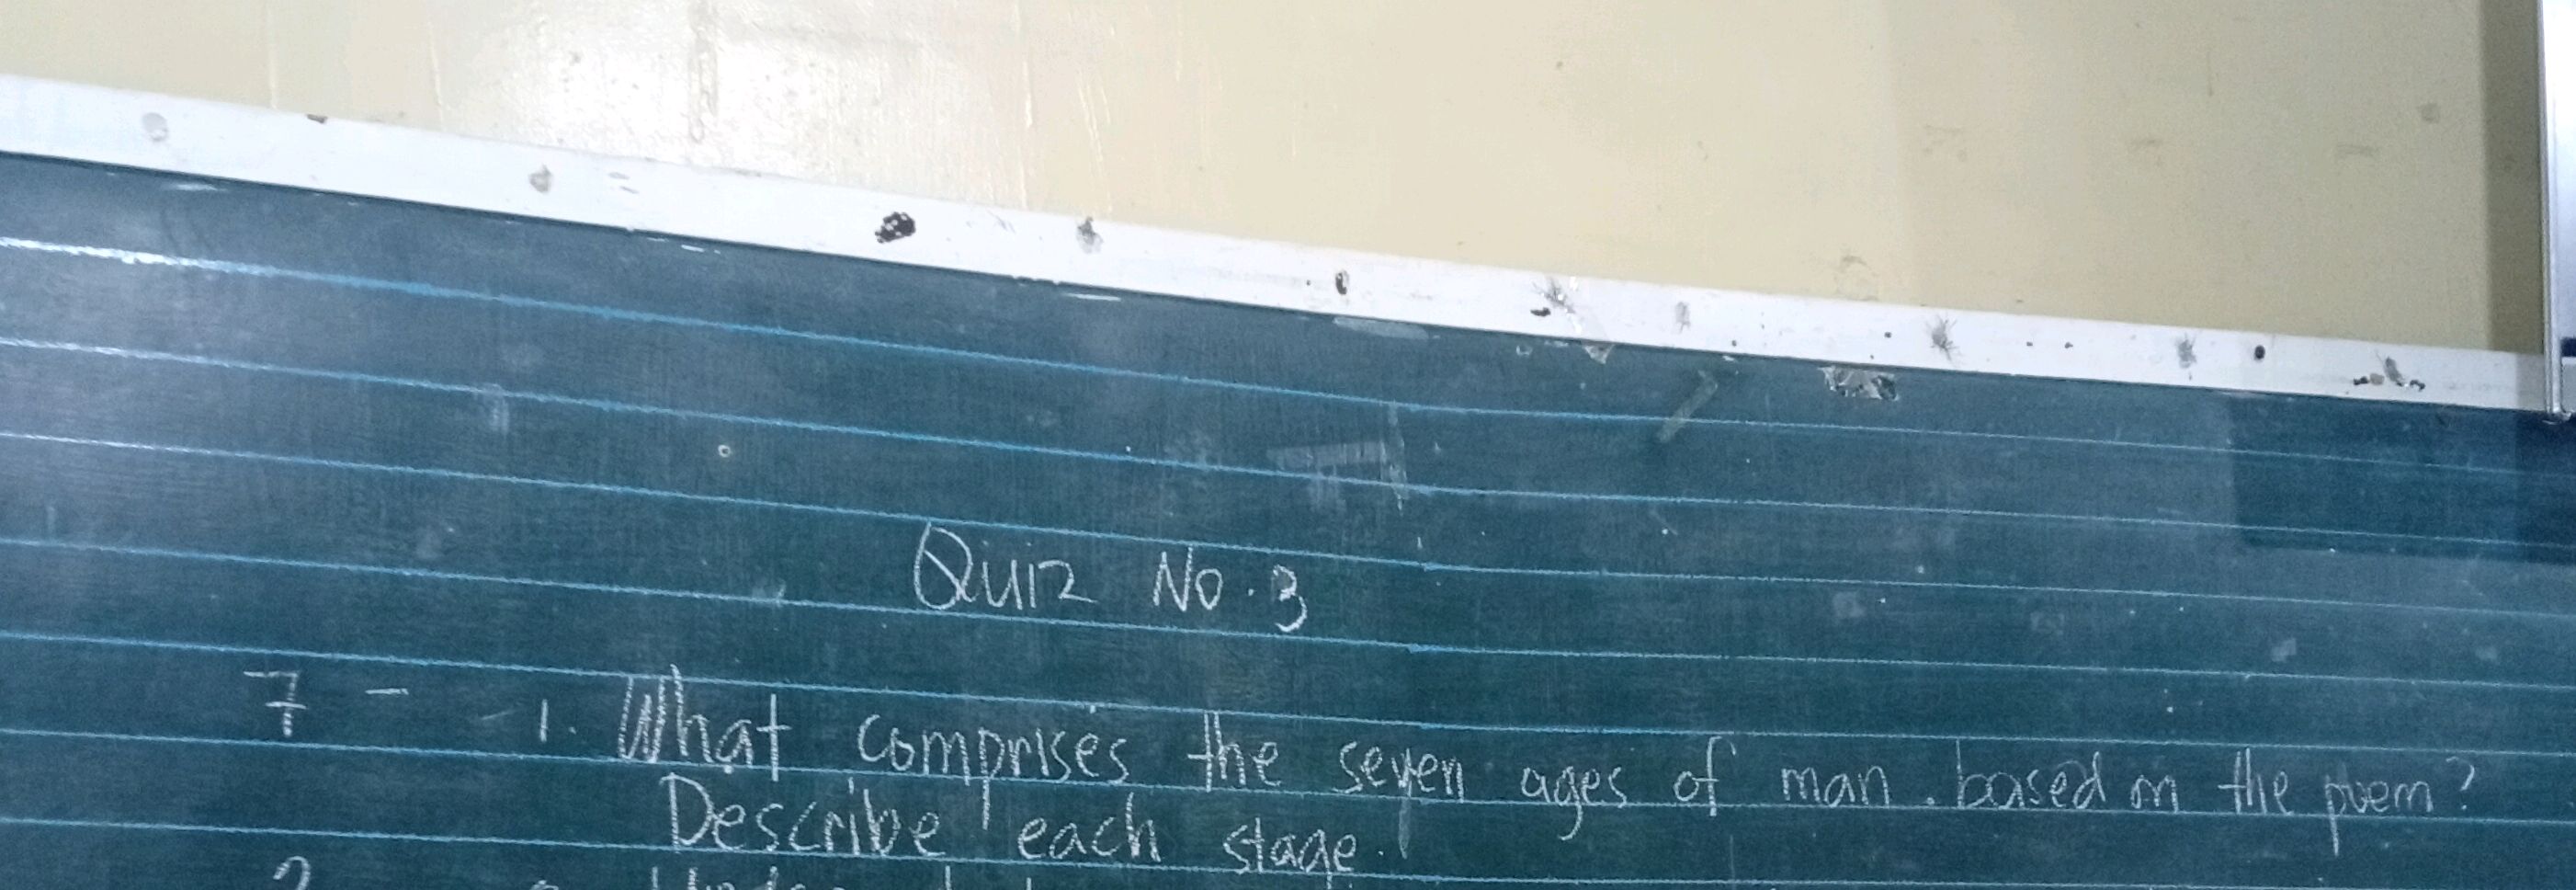 Quiz No. 3
7 - 1. What comprises the seven ages of man. based on the poem?
Describe each stage.